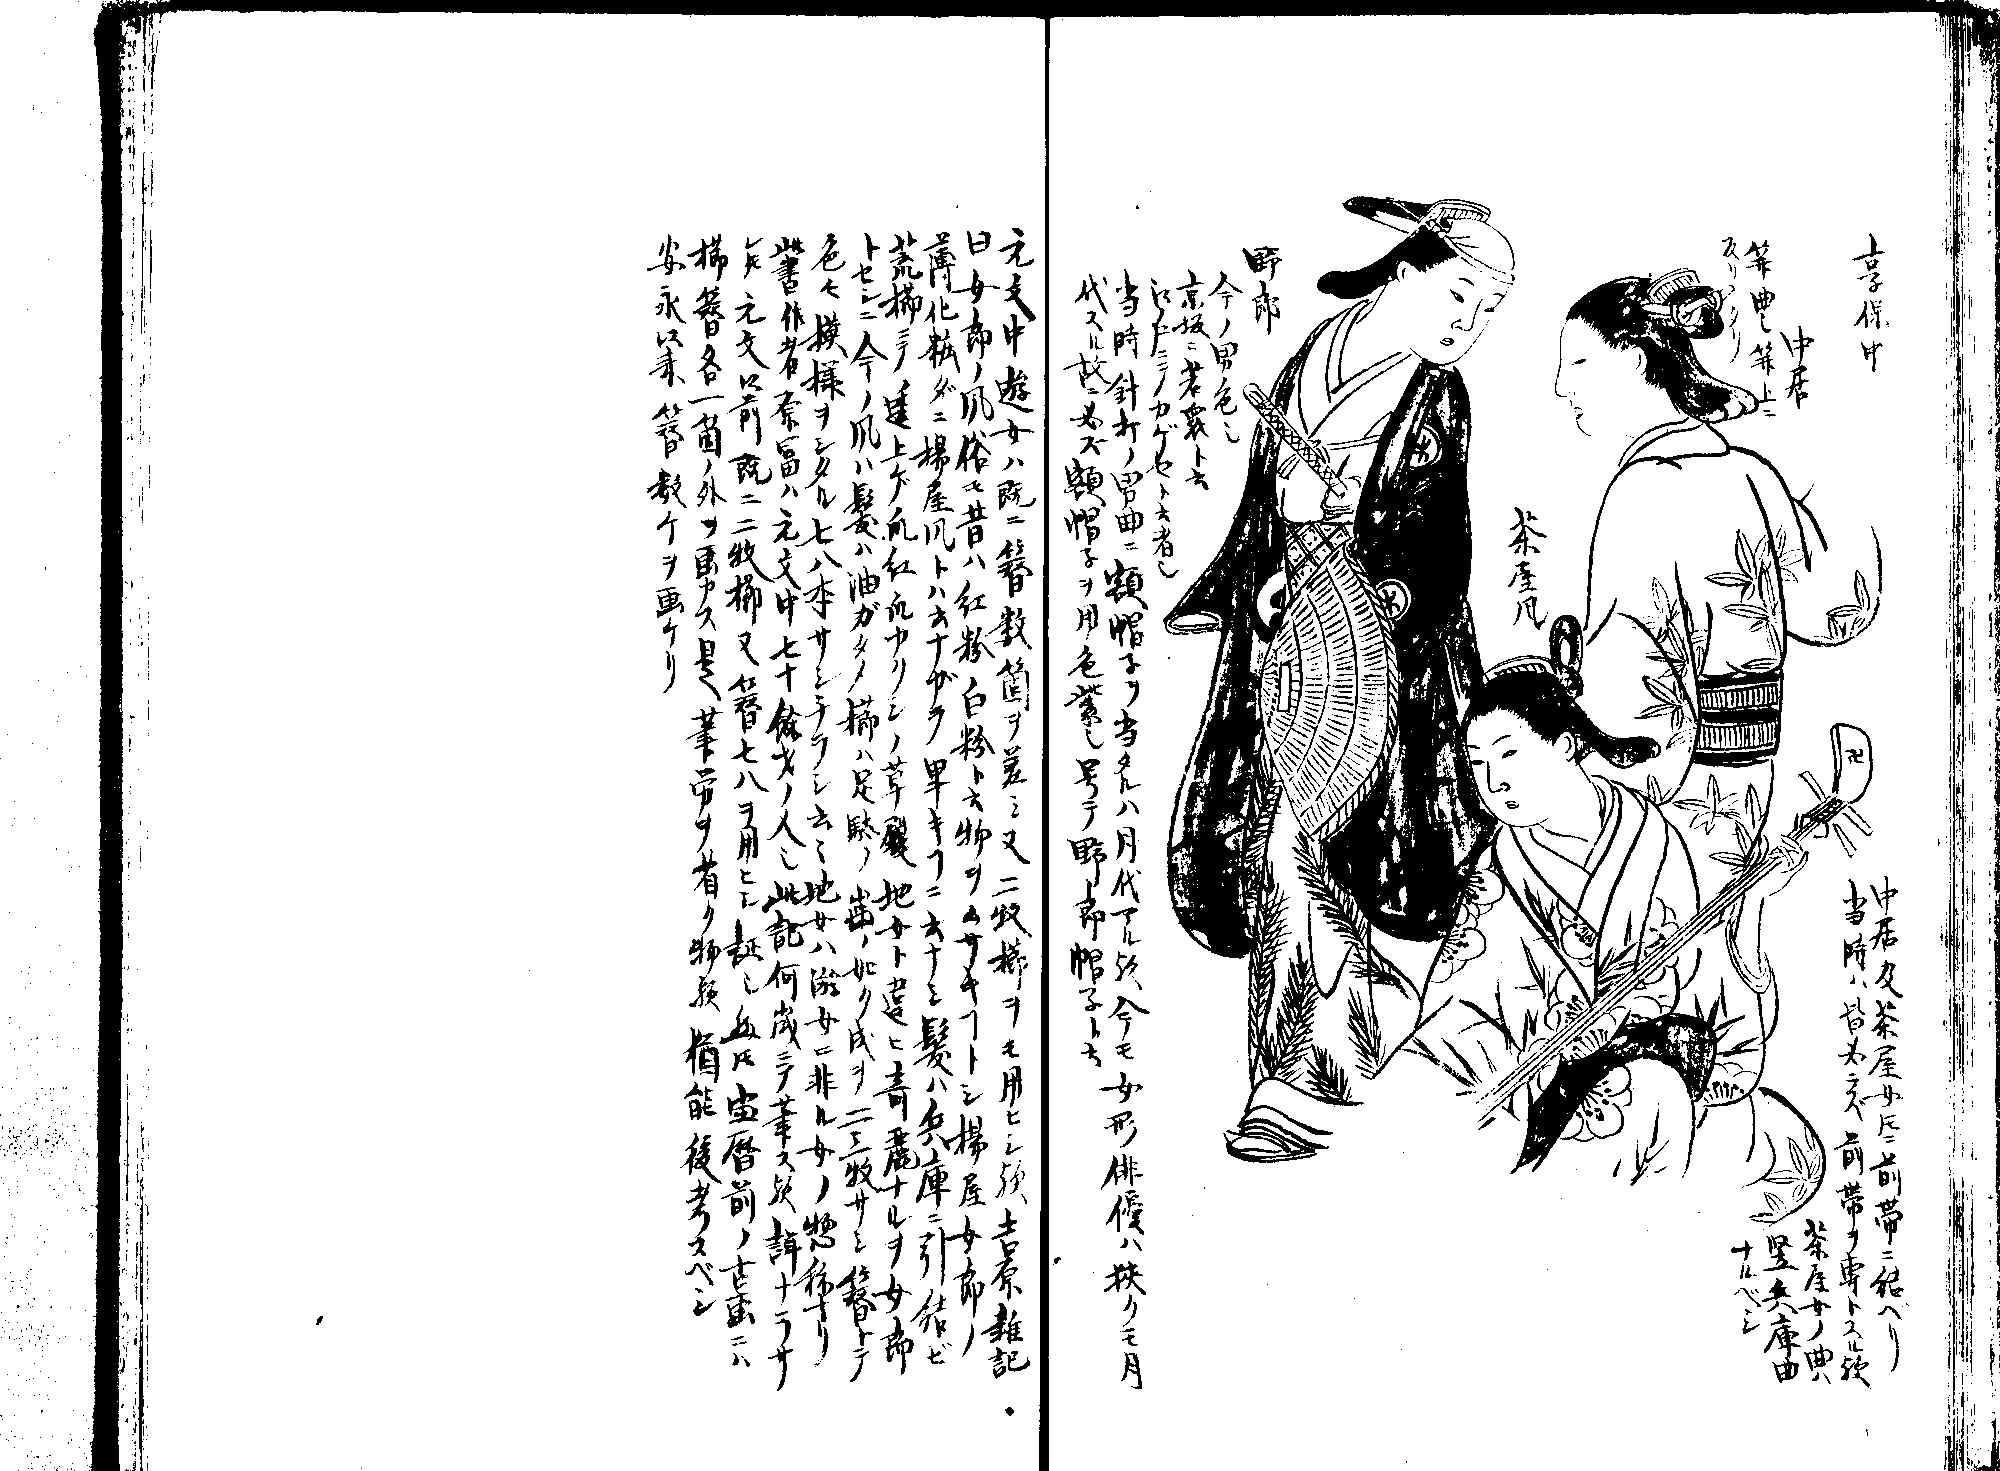 享保中
中居
笄曲也笄上ニ
反リアリ
茶屋風
野郎
今ノ男色也
京坂ニ若衆ト云
江戸ニテカゲセト云者也
当時針打ノ男曲ニ額帽子ヲ当タルハ月代アル歟今モ女形俳優ハ狭クモ月
代スル故ニ必ズ額帽子ヲ用フ色紫也号テ野郎帽子ト云
中居及茶屋女ドモニ前帯ニ結ベリ
当時ハ皆必ズ前帯ヲ専トスル歟
茶屋女ノ曲ハ
竪兵庫曲
ナルベシ
元文中遊女ハ既ニ簪数箇ヲ差シ又二枚櫛ヲモ用ヒシ歟吉原雑記
曰女郎ノ風俗モ昔ハ紅粉白粉ト云物ヲムサキコトシ揚屋女郎ノ
薄化粧ダニ揚屋風トハ云ナガラ卑キコニ云ナシ髪ハ兵庫ニ引結ビ
荒櫛ニテ達上ゲ爪紅爪中リシノ草履地女ト違ヒ奇麗ナルヲ女郎
トセシニ今ノ風ハ髪ハ油ガタメ櫛ハ足駄ノ歯ノ如ク成ヲ二三枚サシ簪トテ
色モ模様ヲシタル七八本サシチラシ云々地女ハ遊女ニ非ル女ノ惣称ナリ
此書作者奈富ハ元文中七十餘才ノ人也此記何歳ニテ筆ス歟詳ナラサ
レ𪜈元文以前既ニ二枚櫛又簪七八ヲ用ヒシ証也然𪜈宝暦前ノ古画ニハ
櫛簪各一箇ノ外ヲ画カス是筆労ヲ省ク物歟猶能後考スベシ
安永以来簪数ケヲ画ケリ